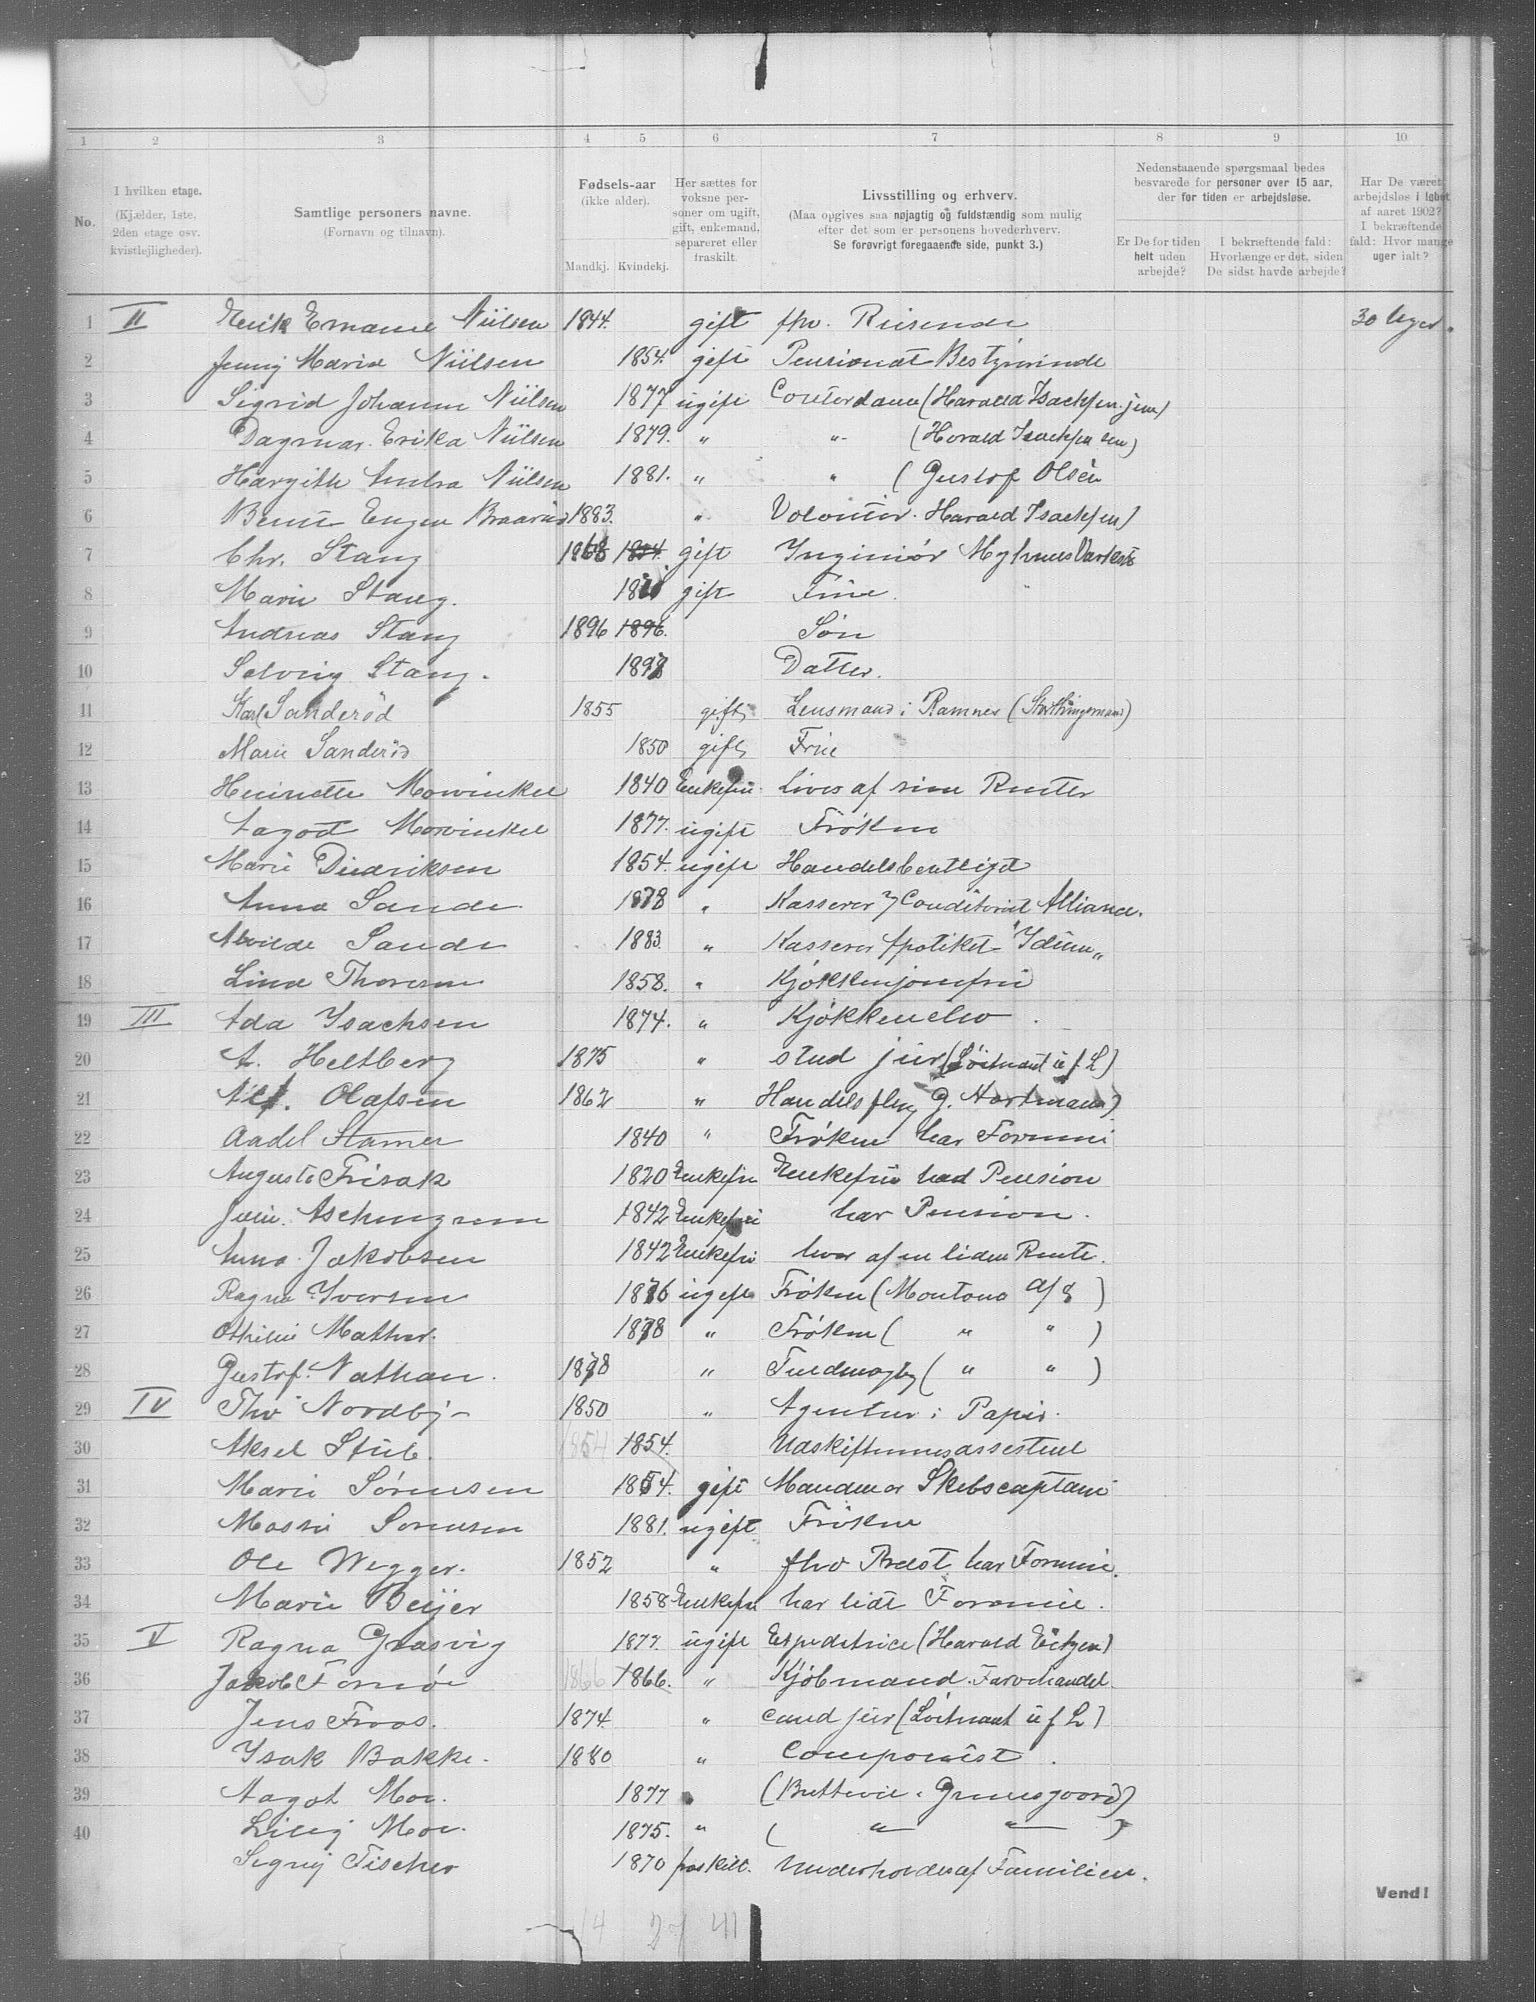 1 2 3 4 5 6 7 8 9 10
No.
I hvilken etage.
(Kjælder, 1ste, 2den etage osv. kvistlejligheder).
Samtlige personers navne.
(Fornavn og tilnavn).
Fødsels-aar
(ikke alder).
Mandkj. Kvindekj.
Her sættes for voksne personer om ugift, gift, enkemand, separeret eller fraskilt.
Livsstilling og erhverv.
(Maa opgives saa nøjagtig og fuldstændig som mulig efter det som er personens hovederhverv.
Se forøvrigt foregaaende side, punkt 3.)
Nedenstaaende spørgsmaal bedes besvarede for personer over 15 aar, der for tiden er arbejdsløse.
Er De for tiden helt uden arbejde?
I bekræftende fald: Hvorlænge er det, siden De sidst havde arbejde?
Har De været arbejdsløs i løbet af aaret 1902? I bekræftende fald: Hvor mange uger ialt?
1 II Erik Emanuel Niilsen 1844. gift fhv. Reisende 30 Uger.
2 Jenny Maria Niilsen 1854. gift Pensionat Bestyrerinde
3 Sigrid Johanne Niilsen 1877 ugift Contordame (Harald Isachsen jun)
4 Dagmar Erika Niilsen 1879. " " (Harald Isachsen sen)
5 Margith Andra Niilsen 1881. " " (Gustof Olsen
6 Bernt Eugen Braarud 1883. " Volontør Harald Isachsen)
7 Chr. Stang 1868 1854. gift Inginiør Myhrens Værksted
8 Marie Stang. 1870 gift Frue.
9 Andreas Stang 1896 1896. Søn
10 Solveig Stang. 1897 Datter.
11 Karl Sanderød 1855 gift Lensmand i Ramnes (Storthingsmand)
12 Marie Sanderød 1850 gift Frue
13 Henriette Mowinkel 1840 Enkefru Lever af sine Renter
14 Aagot Mowinkel 1877. ugift Frøken
15 Marie Diedriksen 1854. ugift Handelsberettiget
16 Anna Sande 1878 " Kasserer i Conditoriet Alliance.
17 Alvilde Sande 1883 " Kasserer Apotiket "Idun"
18 Lina Thoresen 1858. " Kjøkkenjomfru
19 III Ada Isachsen 1874. " Kjøkkenelev
20 A. Heltberg 1875 " stud jur (Løitnant i f L)
21 Alf. Olafsen 1862 " Handelsflm G. Hartmann)
22 Aadel Stamer 1840 " Frøken har Formue
23 Augusta Frisak 1820 Enkefru Enkefru med Pension
24 Julie Aschengreen 1842 Enkefru har Pension.
25 Anna Jakobsen 1842 Enkefru lever af en liden Rente.
26 Ragna Iversen 1876 ugift Frøken (Montona A/S)
27 Othilie Mather. 1878 " Frøken ( " " )
28 Gustof Nathan. 1878 " Fuldmægtig ( " " )
29 IV Thv Nordby 1850 " Agentur i Papir.
30 Aksel Stub. 1854 1854. Udskiftningsassistent
31 Marie Sørensen 1854. gift Manden er Skibscaptain
32 Massi Sørensen 1881. ugift Frøken
33 Ole Wegger. 1852 " fhv Præst har Formue.
34 Marie Beijer 1858 Enkefru har lidt Formue.
35 V Ragna Græsvig 1877. ugift Expeditrice (Harald Eitzen)
36 Jakob Fornøe 1866 1866. " Kjøbmand Farvehandel.
37 Jens Froos. 1874. " cand jur (Løitnant i f L)
38 Isak Bakke. 1880 " Componist.
39 Aagot Moe. 1877 " (Buttevie Grensgaard)
40 Lilly Moe. 1875. " ( " " )
Signy Fischer 1870 fraskilt. Underholdes af Familien.
Vend!
14 27 41